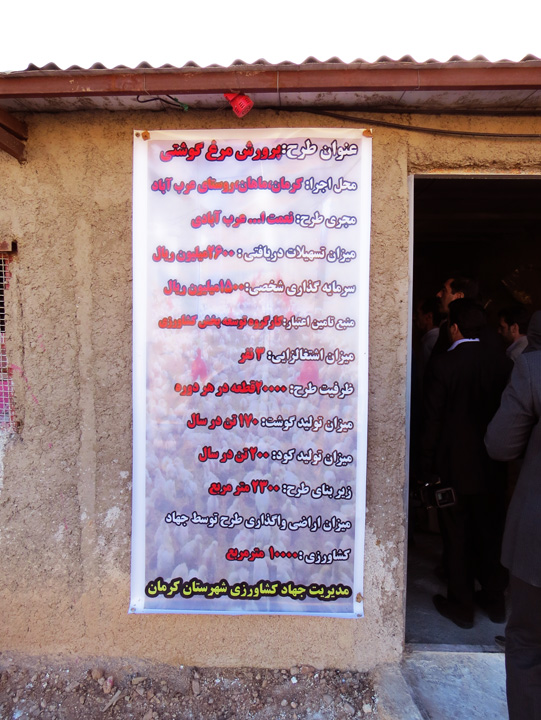 عنوان طرح:پرورش مرغ گوشتی
محل اجرا: کرمان،ماهان،روستای عرب آباد
مجری طرح: نعمت ا... عرب آبادی
میزان تسهیلات دریافتی: ۲۶۰۰میلیون ریال
سرمایه گذاری شخصی:۱۵۰۰میلیون ریال
منبع تامین اعتبار:کارگروه توسعه بخش کشاورزی
میزان اشتغالزایی: ۳ نفر
ظرفیت طرح: ۲۰۰۰۰قطعه در هر دوره
میزان تولید گوشت: ۱۷۰ تن در سال
میزان تولید کود: ۲۰۰ تن در سال
زیر بنای طرح: ۲۳۰۰ متر مربع
میزان اراضی واگذاری طرح توسط جهاد
کشاورزی: ۱۰۰۰۰ مترمربع
مدیریت جهاد کشاورزی شهرستان کرمان